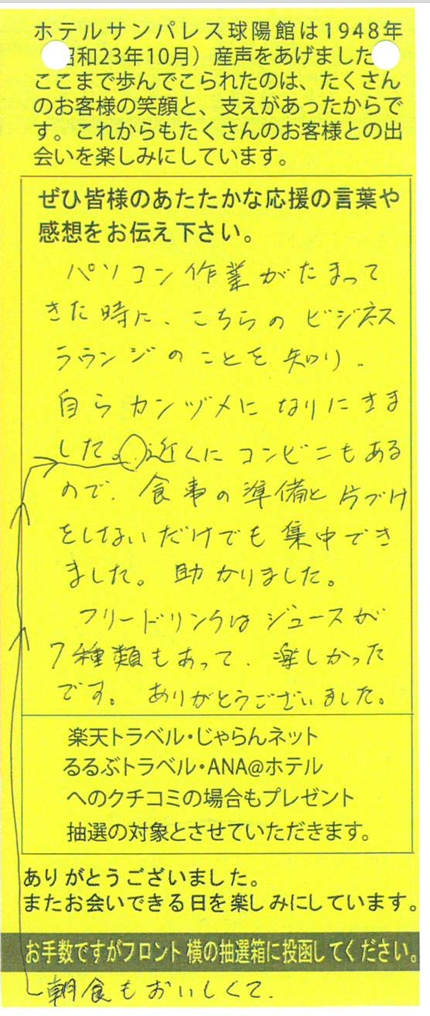 ホテルサンパレス球陽館は1948年
昭和23年10月）産声をあげました
ここまで歩んでこられたのは、たくさん
のお客様の笑顔と、支えがあったからで
す。これからもたくさんのお客様との出
会いを楽しみにしています。
ぜひ皆様のあたたかな応援の言葉や
感想をお伝え下さい。
パソコン作業がたまって
きた時に、こちらのビジネス
ラウンジのことを知り、
自らカンヅメになりにきま
した。近くにコンビニもある
ので、食事の準備と片づけ
をしないだけでも集中でき
ました。助かりました。
フリードリンクはジュースが
7種類もあって、楽しかった
です。ありがとうございました。
楽天トラベル・じゃらんネット
るるぶトラベル・ANA@ホテル
へのクチコミの場合もプレゼント
抽選の対象とさせていただきます。
ありがとうございました。
またお会いできる日を楽しみにしています。
お手数ですがフロント横の抽選箱に投函してください。
朝食もおいしくて、